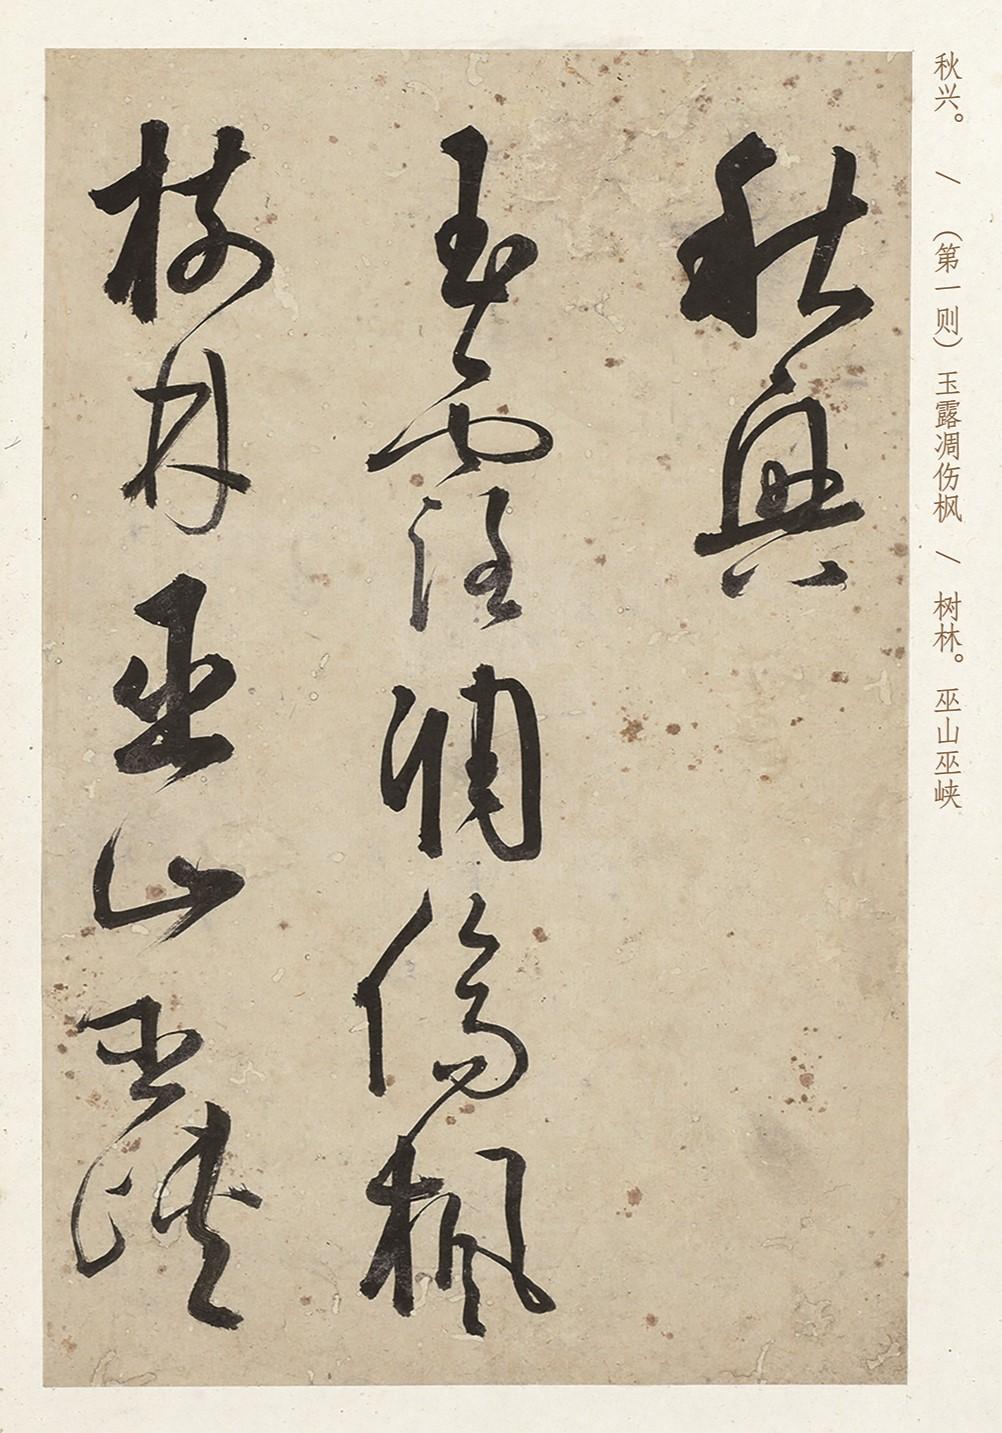 秋兴。 / （第一则）玉露凋伤枫 / 树林。巫山巫峡
秋興
玉露凋傷枫
树林巫山巫峡